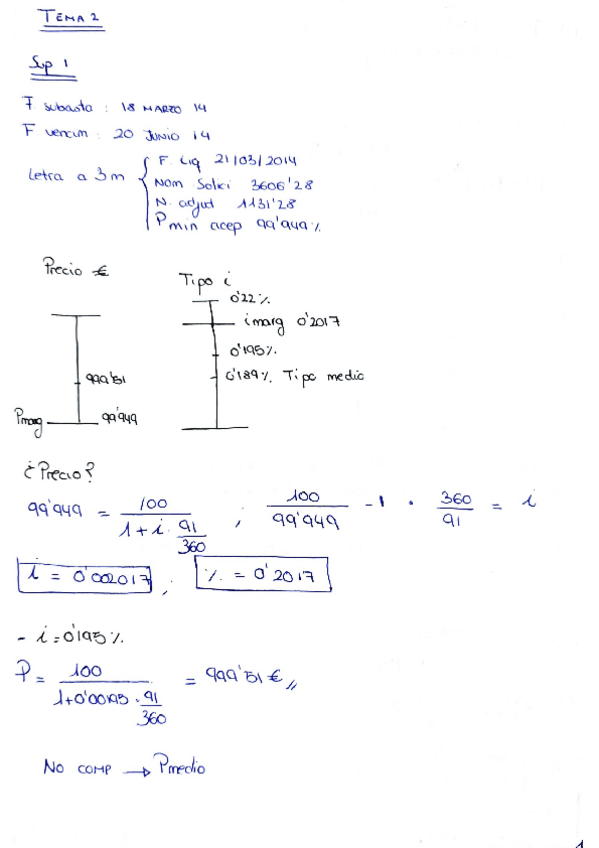 TEMA 2
Sup 1
F subasta : 18 MARZO 14
F vencim : 20 JUNIO 14
Letra a 3m { F. Liq 21/03/2014
Nom Solici 3606'28
N. adjud 1131'28
Pmin acep 99'949%
Precio €
Tipo i
0'22%
i marg 0'2017
0'195%
999'51
0'189% Tipo medio
Pmarg 99'949
¿Precio?
99'949 = 100 / 1 + i · 91/360 ; 100 / 99'949 - 1 · 360/91 = i
i = 0'002017 ; % = 0'2017
- i = 0'195%
P = 100 / 1+0'00195 · 91/360 = 999'51 €
NO COMP → Pmedio
1